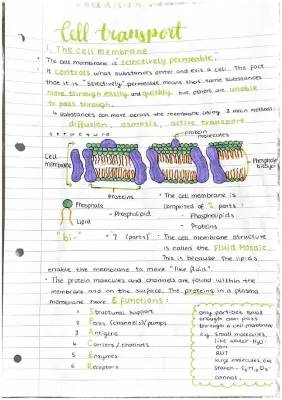 Cell transport
1. The cell membrane
• The cell membrane is selectively permeable.
It controls what substances enter and exit a cell. The fact
that it is "selectively" permeable means that some substances
move through easily and quickly but others are unable
to pass through.
↳ Substances can move across the membrane using 3 main methods:
diffusion, osmosis, active transport
structure
protein molecules
Cell Membrane
Phosphate bilayer
Proteins
Phosphate
Lipid
- Phospholipid
"bi-" • 2 (parts)
• The cell membrane is
comprised of 2 parts:
- Phospholipids
- Proteins
• The cell membrane structure
is called the Fluid Mosaic.
This is because the lipids
enable the membrane to move "like fluid".
• The protein molecules and channels are found within the
membrane and on the surface. The proteins in a plasma
membrane have 6 functions:
1 Structural support
2 Pores (channels)/pumps
3 Antigens
4 Carriers / channels
5 Enzymes
6 Receptors
Only particles small
enough can pass
through a cell membrane
E.g. Small molecules,
like water - H₂O
can
BUT
large molecules, like
starch -
cannot.